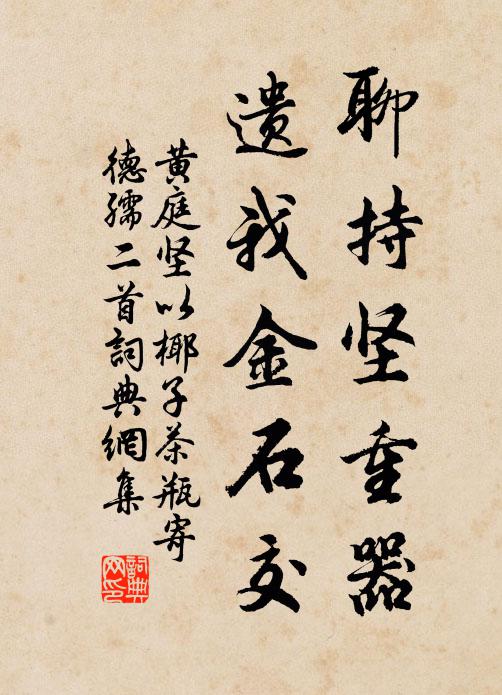 聊持坚重器
遗我金石交
黄庭坚以椰子茶瓶寄
德孺二首詞典網集
詞典网印